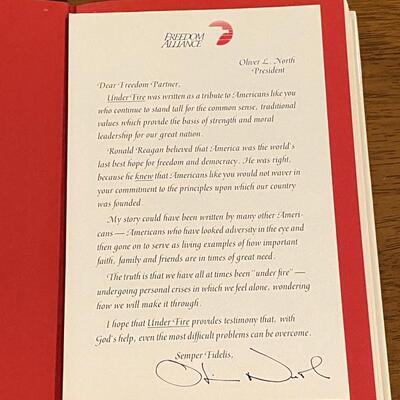 FREEDOM
ALLIANCE
Oliver L. North
President
Dear Freedom Partner,
Under Fire was written as a tribute to Americans like you
who continue to stand tall for the common sense, traditional
values which provide the basis of strength and moral
leadership for our great nation.
Ronald Reagan believed that America was the world's
last best hope for freedom and democracy. He was right,
because he knew that Americans like you would not waver in
your commitment to the principles upon which our country
was founded.
My story could have been written by many other Ameri-
cans — Americans who have looked adversity in the eye and
then gone on to serve as living examples of how important
faith, family and friends are in times of great need.
The truth is that we have all at times been "under fire" —
undergoing personal crises in which we feel alone, wondering
how we will make it through.
I hope that Under Fire provides testimony that, with
God's help, even the most difficult problems can be overcome.
Semper Fidelis,
Oliver North